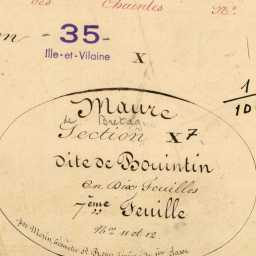 des Chaintes N.os
on - 35 -
Ille-et-Vilaine X
1
10
Maure
de Bretagne
Section X7
dite de Bouintin
en Dix Feuilles
7ème Feuille
Nos 11 et 12
par Morin Géomètre